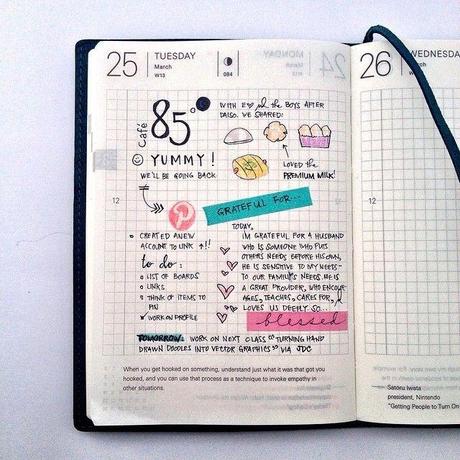 25
TUESDAY
March
W13
084
MONDAY
24
26
WEDNESDA
March
W13
Café
85°
WITH E & THE BOYS AFTER
DAISO. WE SHARED:
YUMMY!
WE'LL BE GOING BACK
LOVED the
PREMIUM MILK!
12
GRATEFUL FOR...
CREATED A NEW
ACCOUNT TO LINK ↑!!
to do:
LIST OF BOARDS
LINKS
THINK OF ITEMS TO
PIN
WORK ON PROFILE
TODAY,
IM GRATEFUL FOR A HUSBAND
WHO IS SOMEONE WHO PUTS
OTHERS NEEDS BEFORE HIS OWN,
HE IS SENSITIVE TO MY NEEDS-
TO OUR FAMILY'S NEEDS. HE IS
A GREAT PROVIDER, WHO ENCOUR-
AGES, TEACHES, CARES FOR, &
LOVES US DEEPLY SO...
blessed
TOMORROW: WORK ON NEXT CLASS "TURNING HAND
DRAWN DOODLES INTO VECTOR GRAPHICS" VIA JDC
When you get hooked on something, understand just what it was that got you
hooked, and you can use that process as a technique to invoke empathy in
other situations.
12
Satoru Iwata
president, Nintendo
"Getting People to Turn On